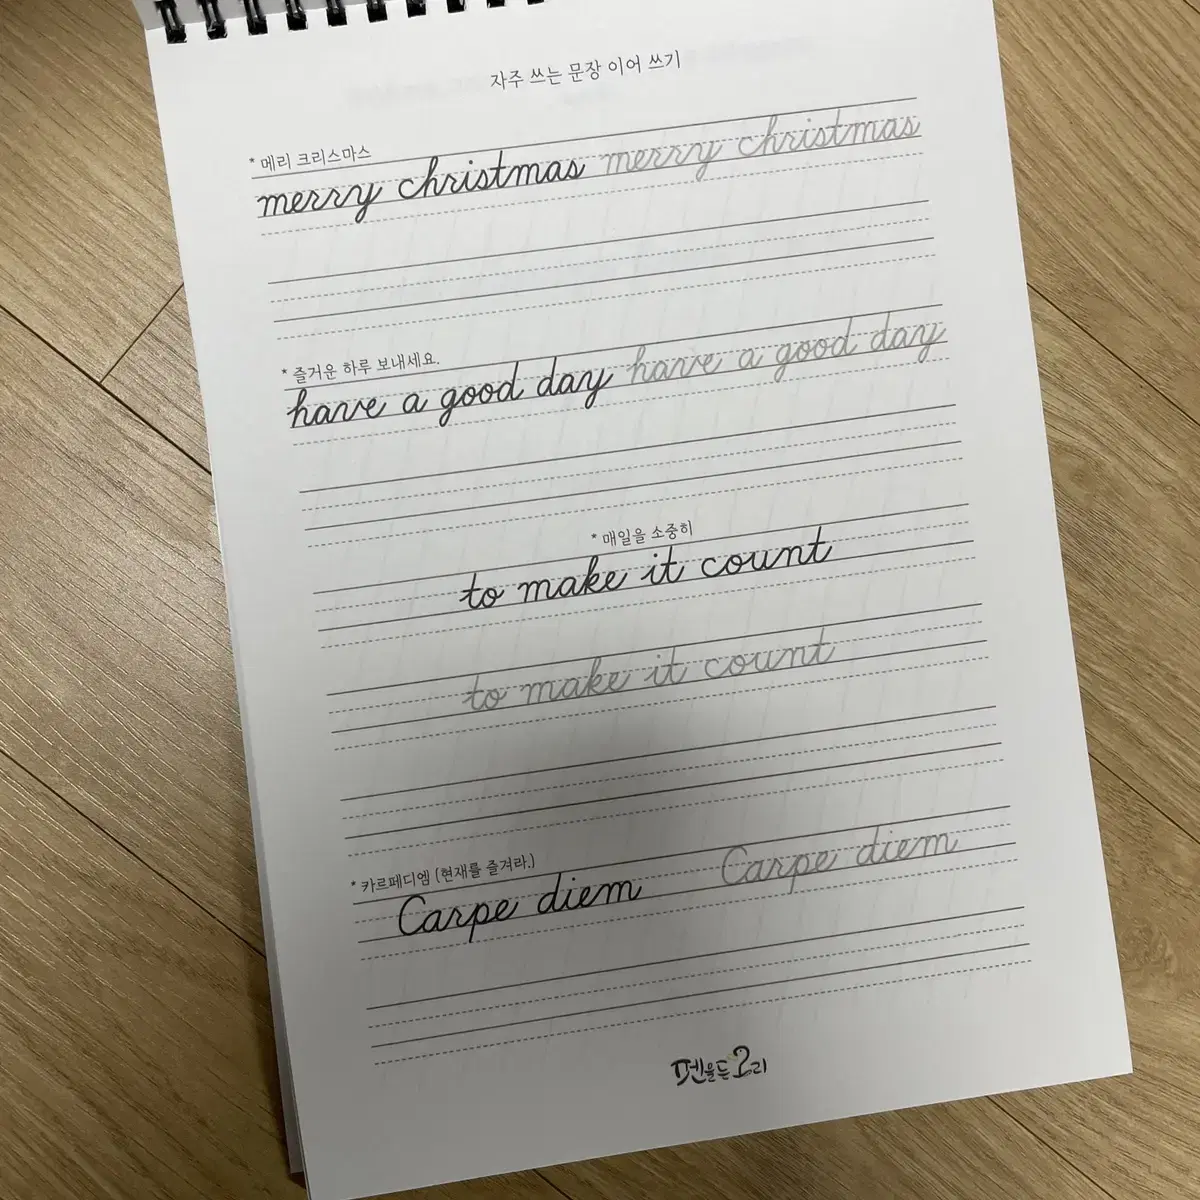 자주 쓰는 문장 이어 쓰기
* 메리 크리스마스
merry christmas merry christmas
* 즐거운 하루 보내세요.
have a good day have a good day
* 매일을 소중히
to make it count
to make it count
* 카르페디엠 (현재를 즐겨라.)
Carpe diem Carpe diem
펜을든오리